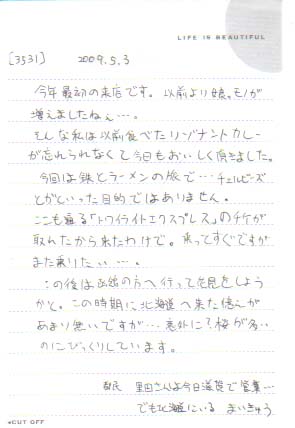 LIFE IS BEAUTIFUL
[3531] 2009.5.3
今年最初の来店です。以前より娘。モノが
増えましたねぇ…。
そんな私は以前食べたリゾナントカレー
が忘れられなくて今日もおいしく頂きました。
今回は鉄とラーメンの旅で…チェルビーズ
とかといった目的ではありません。
ここも通る「トワイライトエクスプレス」のチケが
取れたから来たわけで。乗ってすぐですが
また乗りたい…。
この後は函館の方へ行って花見をしよう
かと。この時期に北海道へ来た憶えが
あまり無いですが…意外にて桜が多い
のにびっくりしています。
都民 里田さんは今日滋賀で営業…
でも北海道にいる まいきゅう
*CUT OFF